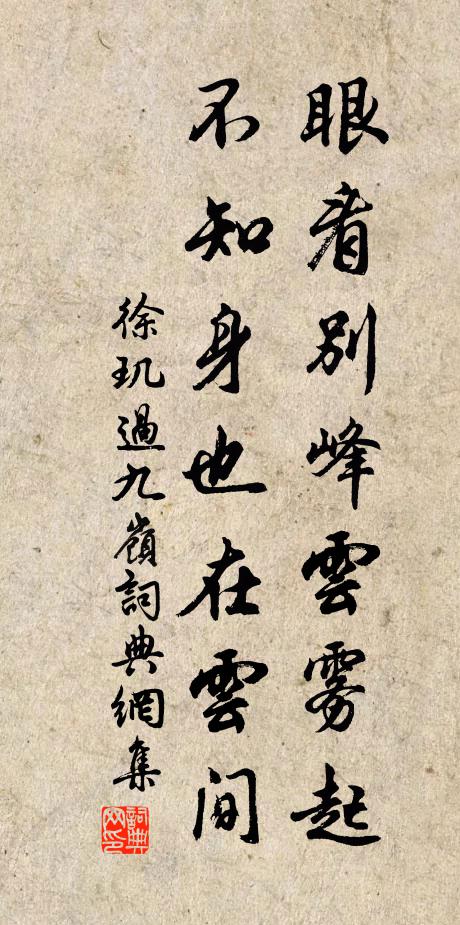 眼看別峰雲霧起
不知身也在雲間
徐玑過九嶺詞典網集
詞典网印